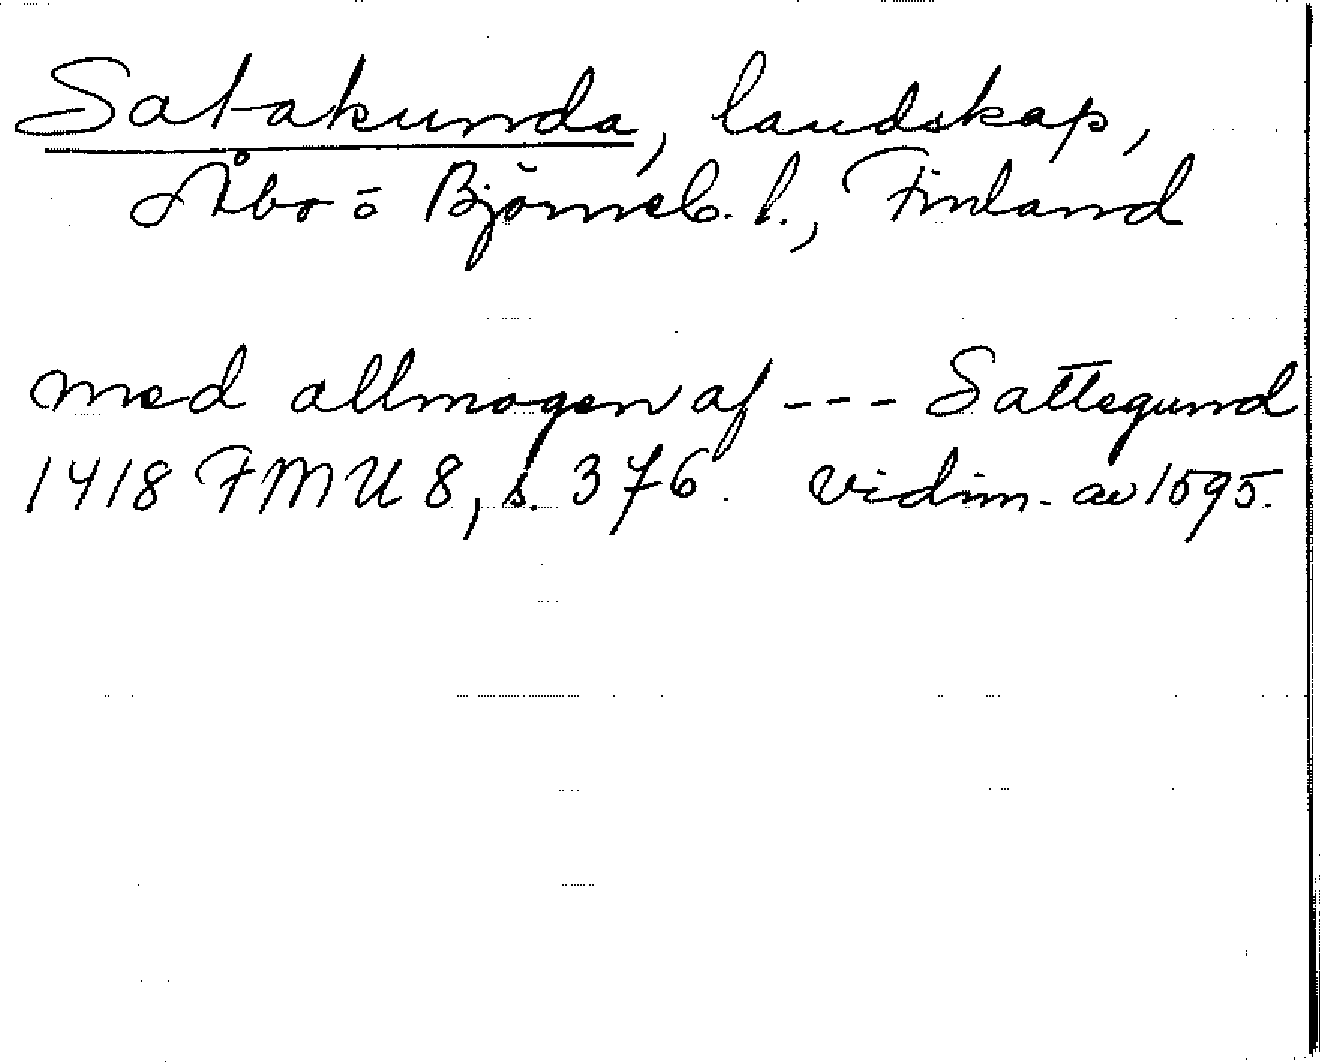 Satakunda, landskap,
Åbo o Björneb. l., Finland
med allmogen af --- Sattegund
1418 FMU 8, s. 376. Vidim. av 1595.